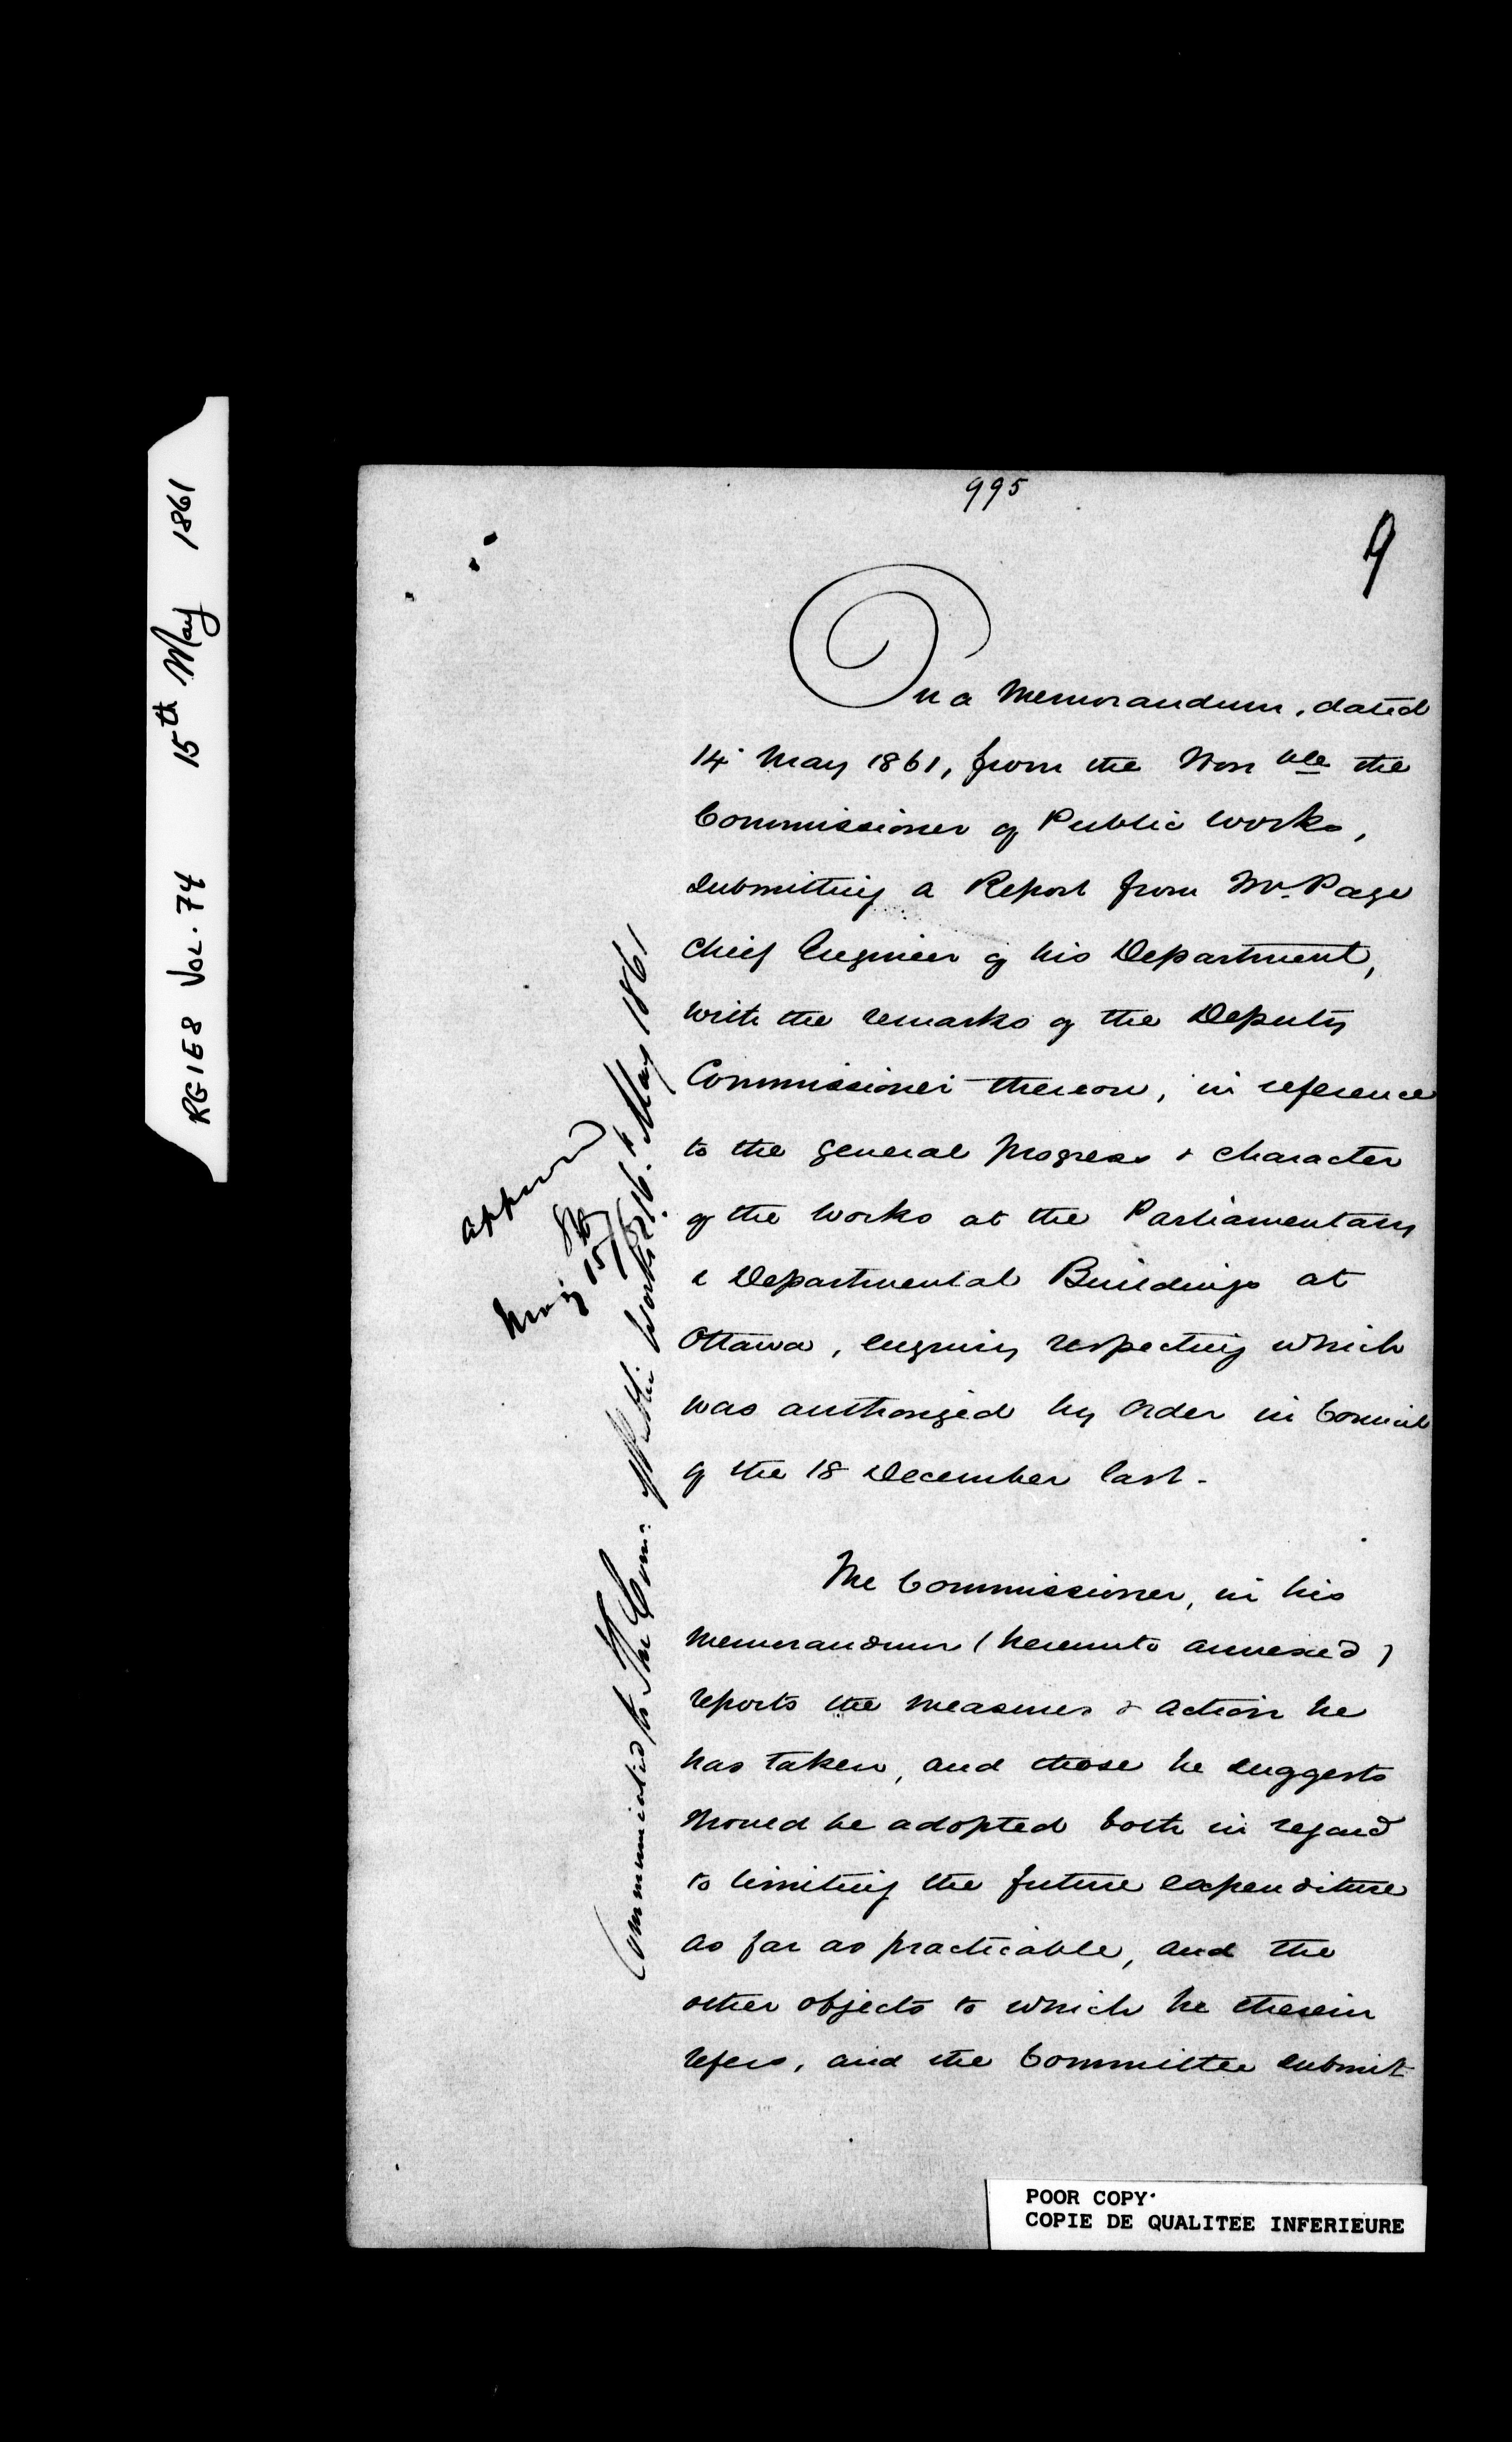 RG1E8 VOL. 74 15th May 1861
995
9
On a Memorandum, dated
14 May 1861, from the Honble the
Commissioner of Public Works,
submitting a Report from Mr. Page
Chief Engineer of his Department,
with the remarks of the Deputy
Commissioner thereon, in reference
to the general progress & character
of the Works at the Parliamentary
& Departmental Buildings at
Ottawa, enquiry respecting which
was authorized by Order in Council
of the 18 December last.
The Commissioner, in his
Memorandum (hereunto annexed)
reports the measures & action he
has taken, and those he suggests
should be adopted both in regard
to limiting the future expenditure
as far as practicable, and the
other objects to which he therein
refers, and the Committee submit
Approved
May 15/61
Communicated to The Com: of Public Works 16. May 1861
POOR COPY
COPIE DE QUALITEE INFERIEURE